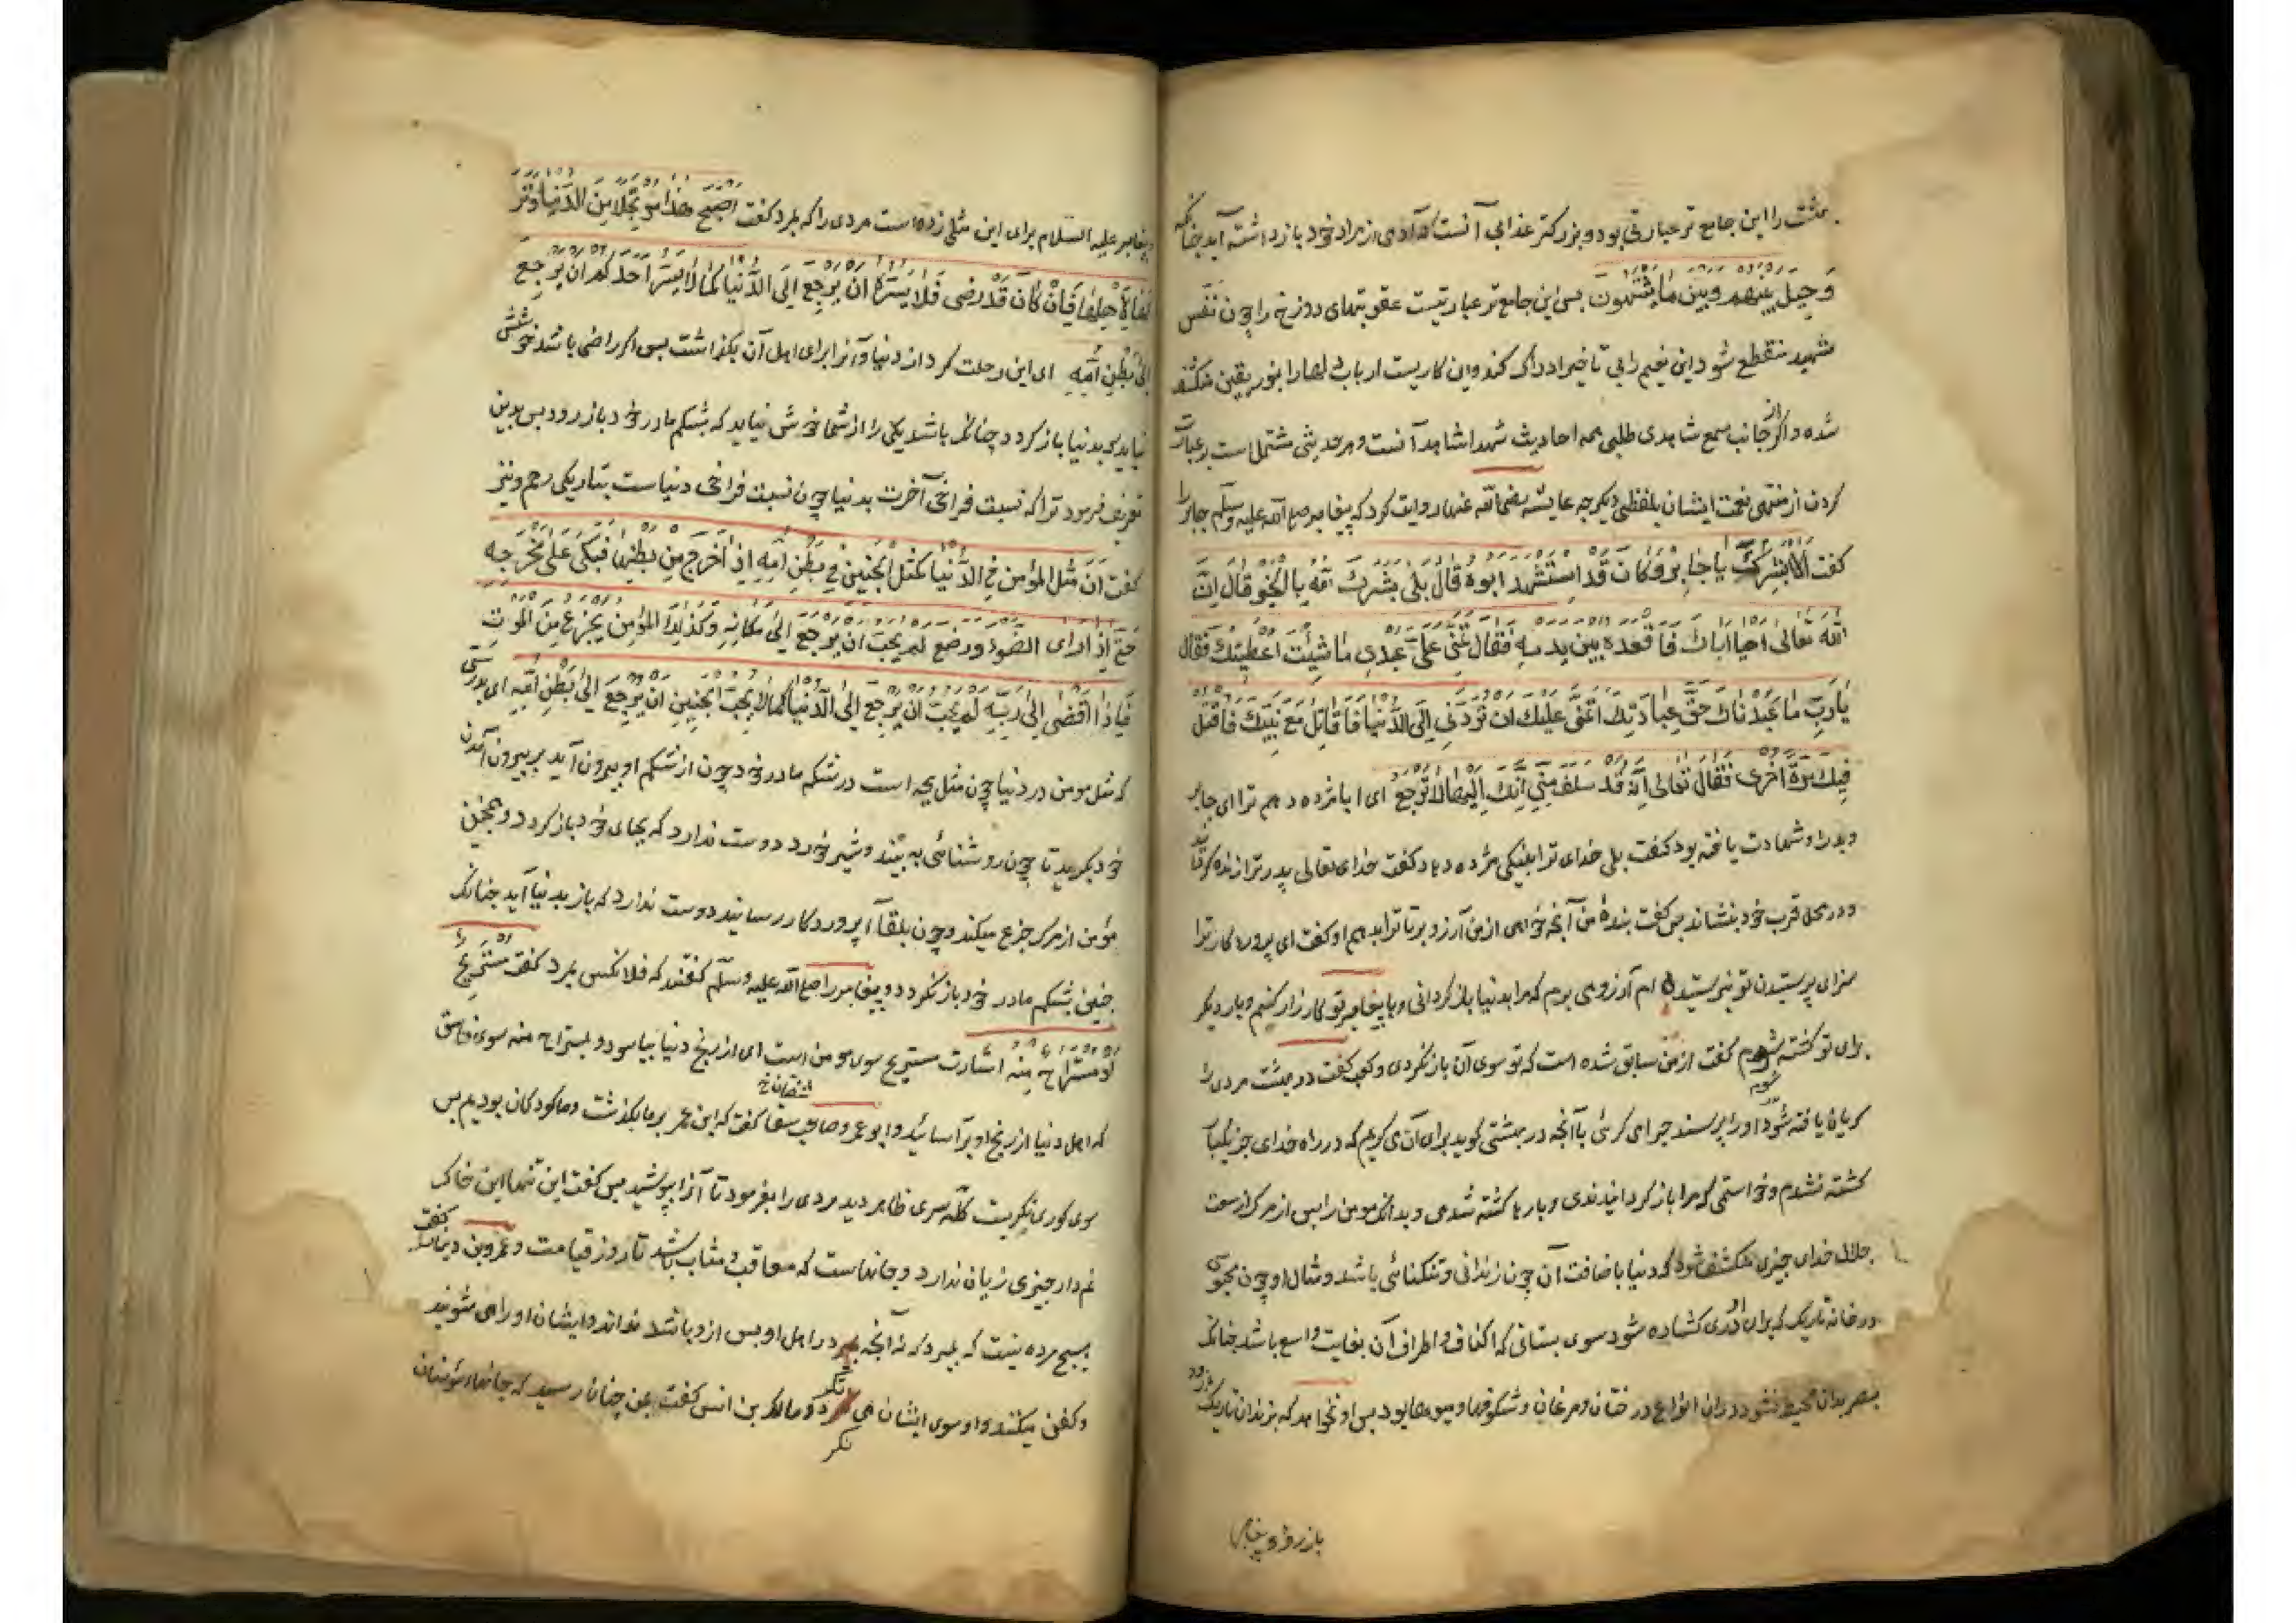 بهشت را این جامع تر عبارتی بود و بزرکتر عذابی آنست که آدمی از مراد خود باز داشته آید چنانکه
وَحِيلَ بَيْنَهُمْ وَبَيْنَ مَا يَشْتَهُونَ بس این جامع تر عبارتیست عقوبتهای دوزخ را چون نفس
شهید منقطع شود این نعیم را بی تاخیر ادراک کند و این کاریست ارباب را بنور یقین منکشف
شده و اکر از جانب سمع شاهدی طلبی همه احادیث شهدا شاهد آنست و هر حدیثی مشتمل است بر عبارت
کردن از منتهی نعمت ایشان بلفظی دیکر چه عایشه رضی الله عنها روایت کرد که پیغامبر صلی الله علیه وسلم جابر را
کفت أَلَا أُبَشِّرُكَ يَا جَابِرُ وَكَانَ قَدِ اسْتُشْهِدَ أَبُوهُ قَالَ بَلَى بَشَّرَكَ اللهُ بِالْخَيْرِ قَالَ إِنَّ
اللهَ تَعَالَى أَحْيَا أَبَاكَ فَأَقْعَدَهُ بَيْنَ يَدَيْهِ فَقَالَ تَمَنَّ عَلَيَّ عَبْدِي مَا شِئْتَ أُعْطِيتُكَ فَقَالَ
يَا رَبِّ مَا عَبَدْنَاكَ حَقَّ عِبَادَتِكَ أَتَمَنَّى عَلَيْكَ أَنْ تَرُدَّنِي إِلَى الدُّنْيَا فَأُقَاتِلَ مَعَ نَبِيِّكَ فَأُقْتَلَ
فِيكَ مَرَّةً أُخْرَى فَقَالَ تَعَالَى إِنَّهُ قَدْ سَلَفَ مِنِّي أَنَّكَ إِلَيْهَا لَا تَرْجِعُ ای ایا مژده دهم ترا ای جابر
و پدر او شهادت یافته بود کفت بلی خدای ترا بنیکی مژده دهاد کفت خدای تعالی پدر ترا زنده کردانید
و در محل قرب خود بنشاند پس کفت بندهٔ من آنچه خواهی از من آرزو بر تا ترا بدهم او کفت ای پروردکار ترا
سزای پرستیدن تو نپرستیده ام آرزو می برم که مرا بدنیا باز کردانی و با پیغامبر تو کارزار کنم و بار دیکر
برای تو کشته شوم کفت از من سابق شده است که تو سوی آن باز نکردی و کعب کفت در بهشت مردی را
کریان یافته شود او را پرسند چرا می کرئی با آنچه در بهشتی کوید برای آن می کریم که در راه خدای جز یکبار
کشته نشدم و خواستمی که مرا باز کردانیدندی و بارها کشته شدمی و بدانکه مومن را پس از مرک از سعت
جلال خدای چیزی منکشف شود که دنیا باضافت آن چون زندانی و تنکنائی باشد و مثال او چون محبوسی
در خانه تاریک که برای او دری کشاده شود سوی بستانی که اکناف و اطراف آن بغایت واسع باشد چنانکه
بصر بدان محیط نشود و دران انواع درختان و مرغان و شکوفها و میوها بود پس او نخواهد که بزندان تاریک باز رود
باز رود و پیغامبر
پیغامبر علیه السلام برای این مثلی زده است مردی را که بمرد کفت أَصْبَحَ هَذَا مُرْتَحِلًا مِنَ الدُّنْيَا وَتَرَ
كَهَا لِأَهْلِهَا فَإِنْ كَانَ قَدْ رَضِيَ فَلَا يَسُرُّهُ أَنْ يَرْجِعَ إِلَى الدُّنْيَا كَمَا لَا يَسُرُّ أَحَدَكُمْ أَنْ يَرْجِعَ
إِلَى بَطْنِ أُمِّهِ ای این رحلت کرد از دنیا و آنرا برای اهل آن بکذاشت پس اکر راضی باشد خوشش
نیاید که بدنیا باز کردد چنانکه باشد یکی را از شما خوش نیاید که بشکم مادر خود باز رود پس بدین
تعریف فرمود ترا که نسبت فراخی آخرت بدنیا چون نسبت فراخی دنیاست بتاریکی رحم و نیز
کفت إِنَّ مَثَلَ الْمُؤْمِنِ فِي الدُّنْيَا كَمَثَلِ الْجَنِينِ فِي بَطْنِ أُمِّهِ إِذَا خَرَجَ مِنْ بَطْنِهَا فَبَكَى عَلَى مَخْرَجِهِ
حَتَّى إِذَا رَأَى الضَّوْءَ وَرَضَعَ لَمْ يُحِبَّ أَنْ يَرْجِعَ إِلَى مَكَانِهِ وَكَذَلِكَ الْمُؤْمِنُ يَجْزَعُ مِنَ الْمَوْتِ
فَإِذَا أَفْضَى إِلَى رَبِّهِ لَمْ يُحِبَّ أَنْ يَرْجِعَ إِلَى الدُّنْيَا كَمَا لَا يُحِبُّ الْجَنِينُ أَنْ يَرْجِعَ إِلَى بَطْنِ أُمِّهِ ای بدرستی
که مثل مومن در دنیا چون مثل بچه است در شکم مادر خود چون از شکم او بیرون آید بر بیرون آمدن
خود بکرید تا چون روشنائی به بیند و شیر خورد دوست ندارد که بجای خود باز کردد و همچنین
مؤمن از مرک جزع میکند و چون بلقآء پروردکار رسانید دوست ندارد که باز بدنیا آید چنانکه
جنین بشکم مادر خود باز نکردد و پیغامبر را صلی الله علیه وسلم کفتند که فلانکس بمرد کفت مُسْتَرِيحٌ
أَوْ مُسْتَرَاحٌ مِنْهُ اشارت مستریح سوی مومن است ای از رنج دنیا بیاسود و مستراح منه سوی فاسق
که اهل دنیا از رنج او برآسائید و ابو عمرو صاحب سقا کفت که ابن عمر برما بکذشت و ما کودکان بودیم پس
سوی کوری نکریست کله سری ظاهر دید مردی را بفرمود تا آنرا بپوشید پس کفت این تنها این خاک
نم دار چیزی زیان ندارد و جانهاست که معاقب و مثاب باشد تا روز قیامت و عمرو بن دینار کفت
هیچ مرده نیست که بمیرد که نه آنچه در اهل او پس ازو باشد نداند و ایشان او را می شویند
و کفن میکنند و او سوی ایشان می نکرد و مالک بن انس کفت بمن چنان رسید که جانهاء مؤمنان
نکر